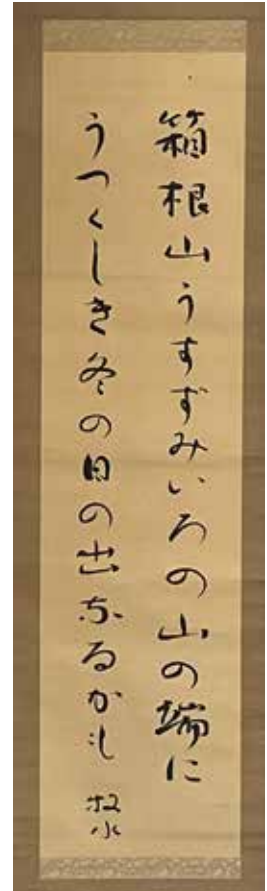 箱根山うすずみいろの山の端に
うつくしき冬の日の出なるかも 牧水